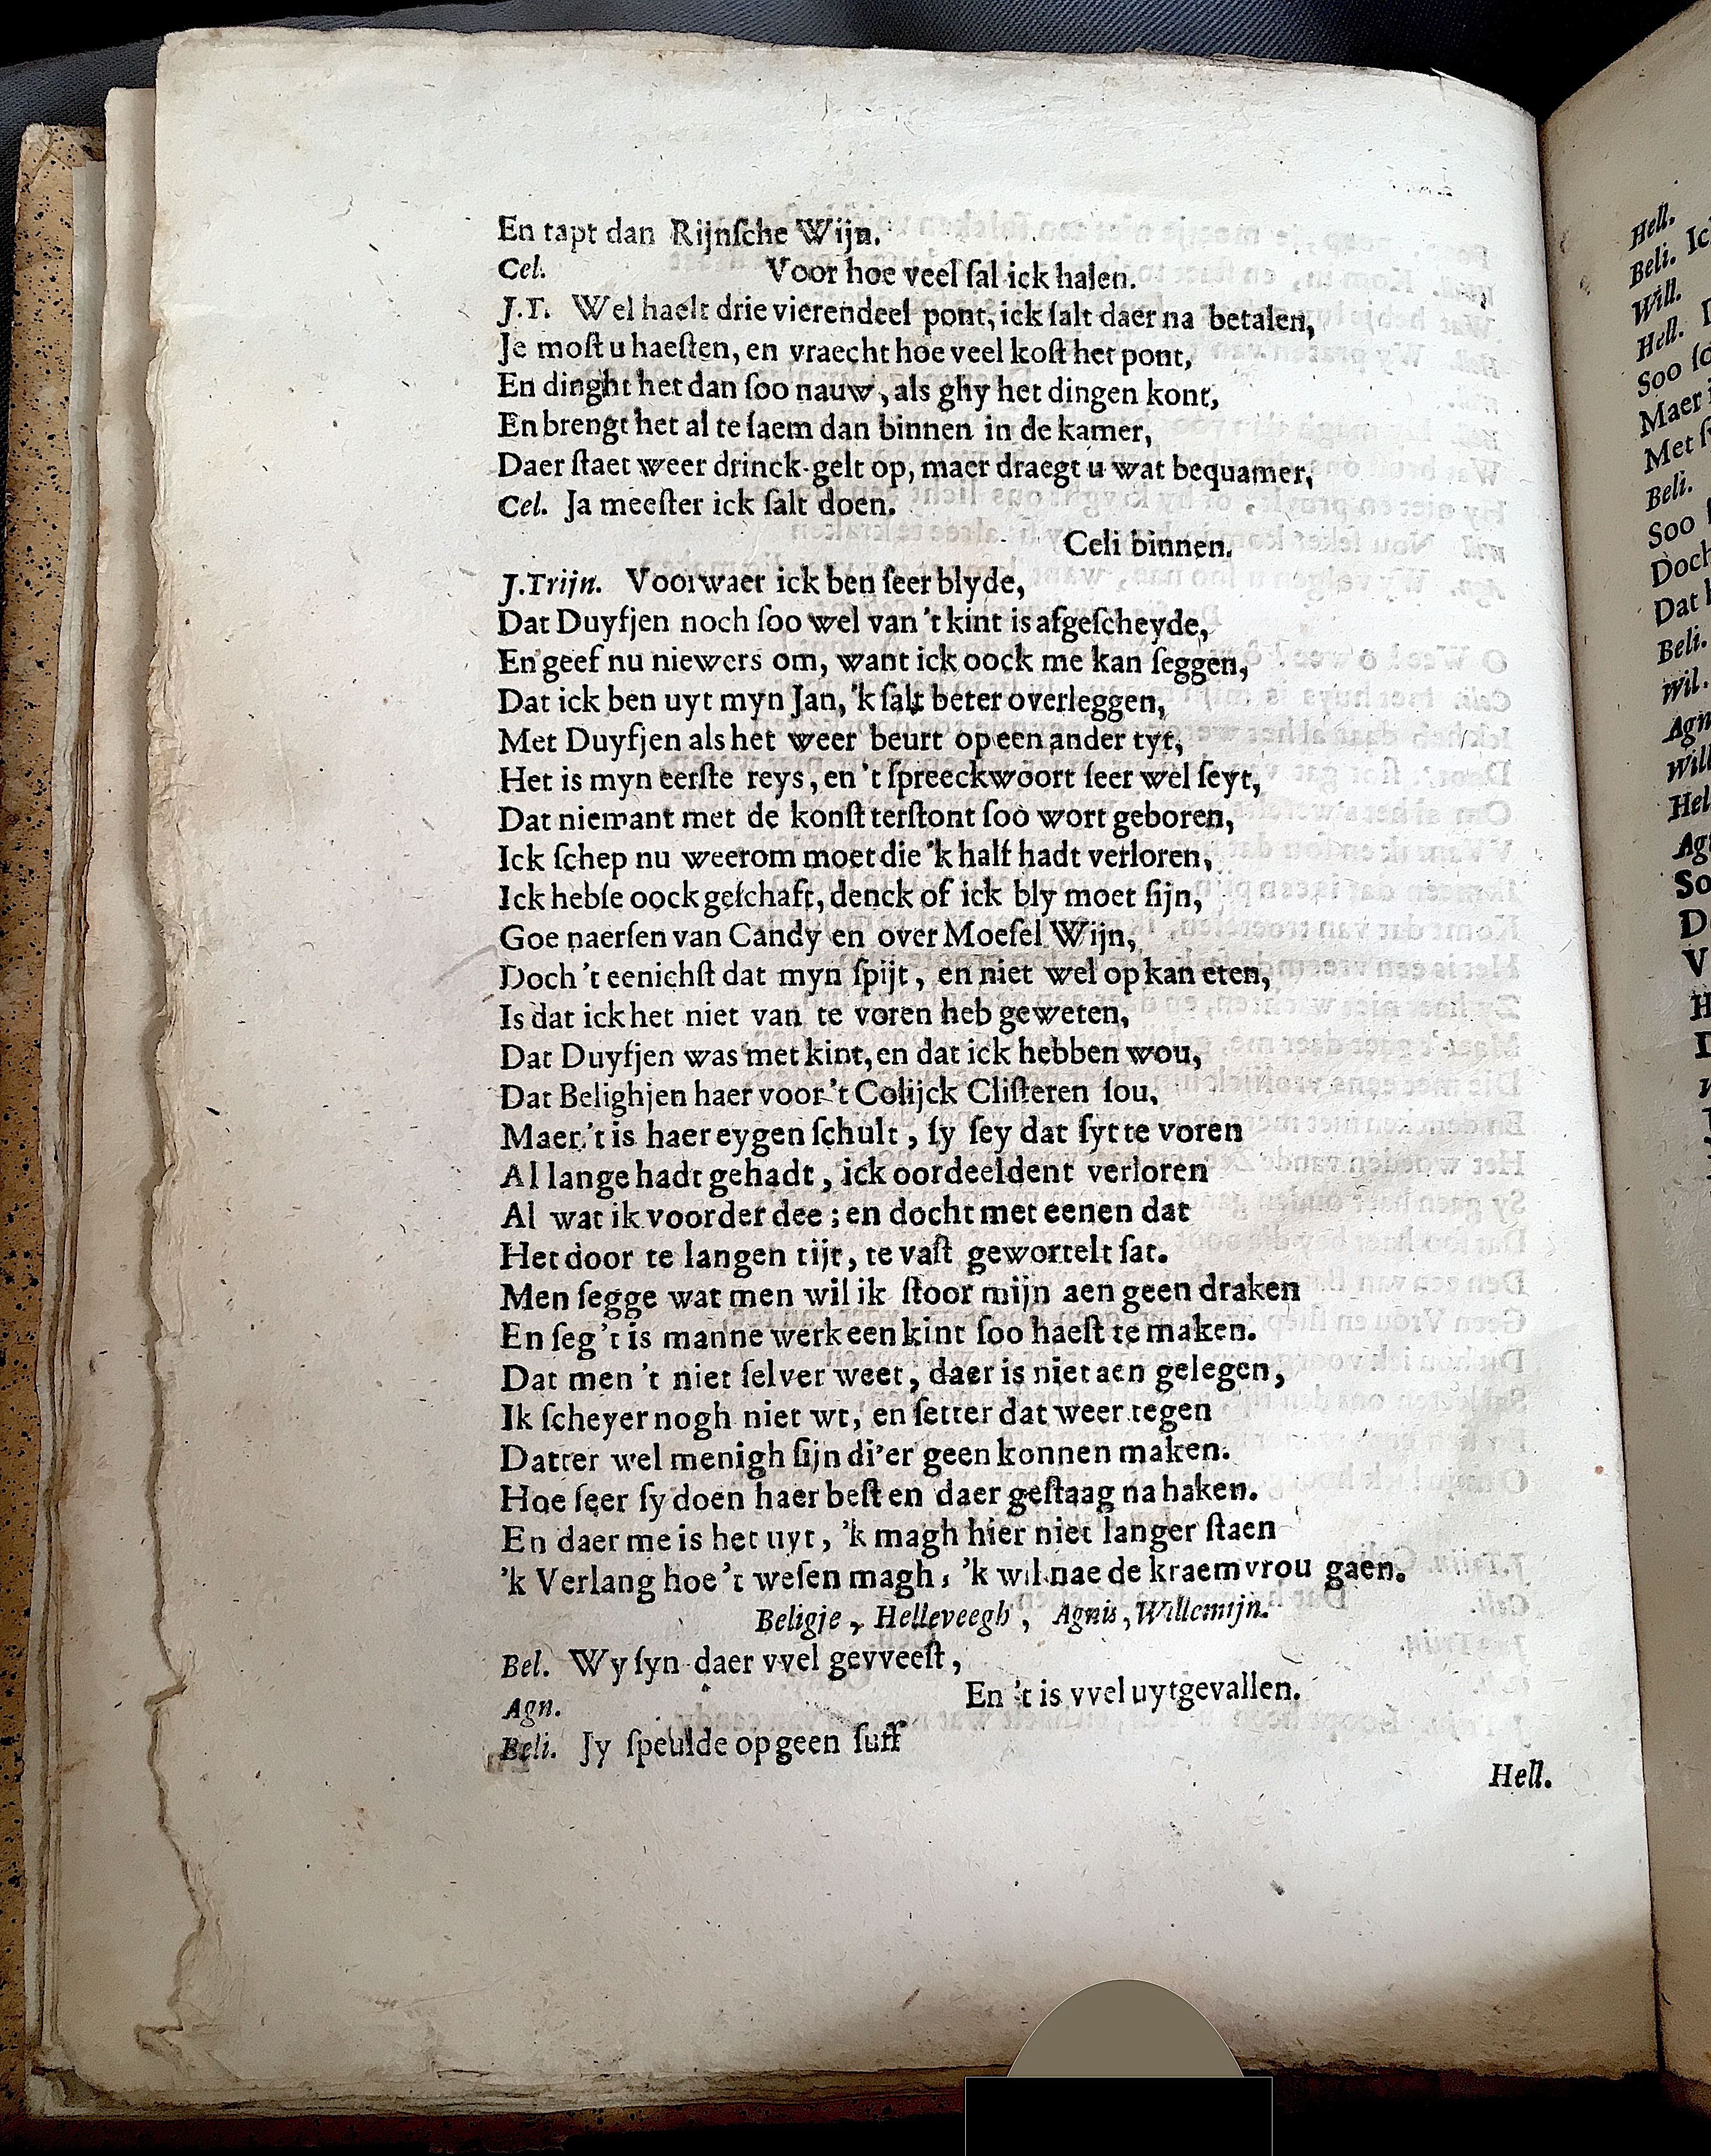 En tapt dan Rijnſche Wijn.
Cel. Voor hoe veel ſal ick halen.
J.T. Wel haelt drie vierendeel pont, ick ſalt daer na betalen,
Je moſt u haeſten, en vraecht hoe veel koſt het pont,
En dinght het dan ſoo nauw, als ghy het dingen kont,
En brengt het al te ſaem dan binnen in de kamer,
Daer ſtaet weer drinck-gelt op, maer draegt u wat bequamer,
Cel. Ja meeſter ick ſalt doen.
Celi binnen.
J.Trijn. Voorwaer ick ben ſeer blyde,
Dat Duyfjen noch ſoo wel van 't kint is afgeſcheyde,
En geef nu niewers om, want ick oock me kan ſeggen,
Dat ick ben uyt myn Jan, 'k ſalt beter overleggen,
Met Duyfjen als het weer beurt op een ander tyt,
Het is myn eerſte reys, en 't ſpreeckwoort ſeer wel ſeyt,
Dat niemant met de konſt terſtont ſoo wort geboren,
Ick ſchep nu weerom moet die 'k half hadt verloren,
Ick hebſe oock geſchaft, denck of ick bly moet ſijn,
Goe naerſen van Candy en over Moeſel Wijn,
Doch 't eenichſt dat myn ſpijt, en niet wel op kan eten,
Is dat ick het niet van te voren heb geweten,
Dat Duyfjen was met kint, en dat ick hebben wou,
Dat Belighjen haer voor 't Colijck Cliſteren ſou,
Maer 't is haer eygen ſchult, ſy ſey dat ſyt te voren
Al lange hadt gehadt, ick oordeeldent verloren
Al wat ik voorder dee; en docht met eenen dat
Het door te langen tijt, te vaſt gewortelt ſat.
Men ſegge wat men wil ik ſtoor mijn aen geen draken
En ſeg 't is manne werk een kint ſoo haeſt te maken.
Dat men 't niet ſelver weet, daer is niet aen gelegen,
Ik ſcheyer nogh niet wt, en ſetter dat weer tegen
Datter wel menigh ſijn di'er geen konnen maken.
Hoe ſeer ſy doen haer beſt en daer geſtaag na haken.
En daer me is het uyt, 'k magh hier niet langer ſtaen
'k Verlang hoe 't weſen magh, 'k wil nae de kraemvrou gaen.
Beligje, Helleveegh, Agnis, Willemijn.
Bel. Wy ſyn daer vvel gevveeſt,
Agn. En 't is vvel uytgevallen.
Beli. Jy ſpeulde op geen ſuff
Hell.
Hell.
Beli. Ic
Will.
Hell.
Soo ſo
Maer i
Met ſ
Beli.
Soo
Doch
Dat
Beli.
Wil.
Agn
Will
Hel
Ag
So